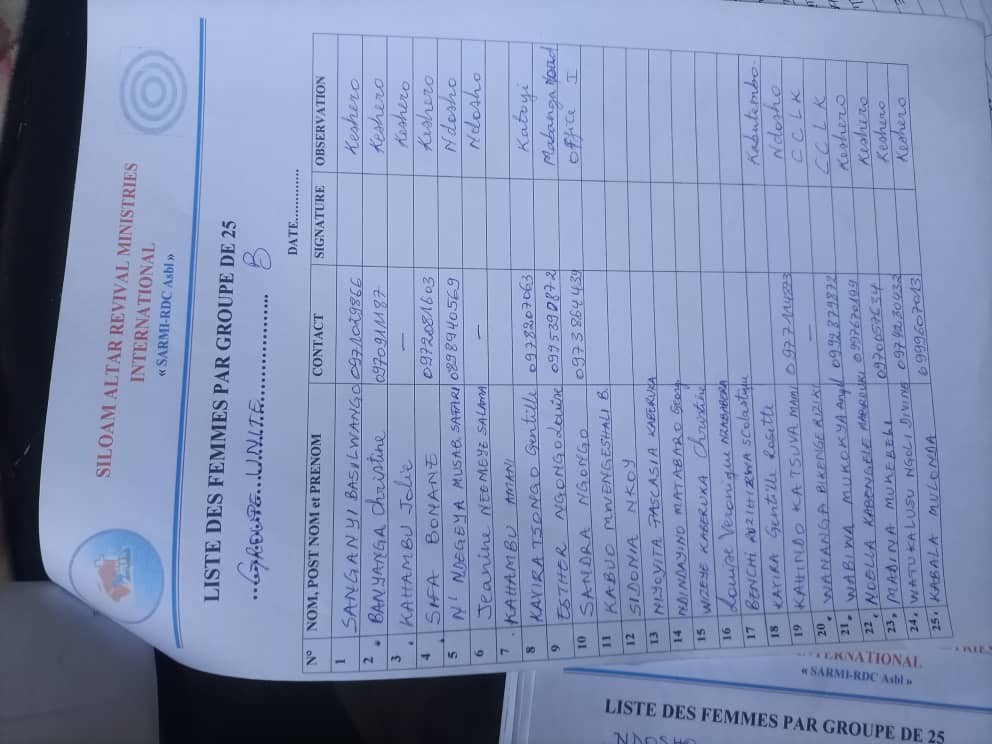 SILOAM ALTAR REVIVAL MINISTRIES
INTERNATIONAL
« SARMI-RDC Asbl »
LISTE DES FEMMES PAR GROUPE DE 25
GROUPE UNITE B
DATE.............
N° NOM, POST NOM et PRENOM CONTACT SIGNATURE OBSERVATION
1 SANGANYI BASILWANGO 0971029866 Keshero
2 BANYANGA Christine 0970911187 Keshero
3 KAHAMBU Jolie — Keshero
4 SAFA BONANE 0972081603 Keshero
5 N'NDEGEYA MUSAB SAFARI 0898940569 Ndosho
6 Jeanine NEEMEYE SALAMA — Ndosho
7 KAHAMBU AMANI
8 KAVIRA TSONGO Gentille 0978207063 Katoyi
9 ESTHER NGONGO Louise 0995390872 Mabanga Nord
10 SANDRA NGONGO 0973864439 Office I
11 KABUO MWENGESHALI B.
12 SIDONIA NKOY
13 NIYOYITA PASCASIA KABERUKA
14 NDINDAYINO MATABARO Georg
15 WIZEYE KABERUKA Christine
16 Louise Veronique NZABABERA
17 BENCHI Scolastique Kahutembo.
18 KAVIRA Gentille Rosette Ndosho
19 KAHINDO KATSUVA MAMI CCLK
20 WANANGA BIKENGE RIZIKI — CCLK
21. WABIWA MUKOKYA Angel 0992879872 Keshero
22. NOELLA KABENGELE Keshero
23. MADINA MUKEBELI 0970057634 Keshero
24. WATUKALUSU NGOLI DIVINE 0978230432 Keshero
25. KABALA MULONDA 0999607013
INTERNATIONAL
« SARMI-RDC Asbl »
LISTE DES FEMMES PAR GROUPE DE 25
NDOSHO